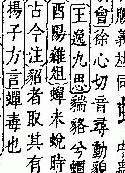 會徐心切音尋動貌
王逸九思貒貉兮蟫
酉陽雜俎蟬未蛻時
古今注貂者取其有
揚子方言蟬毒也